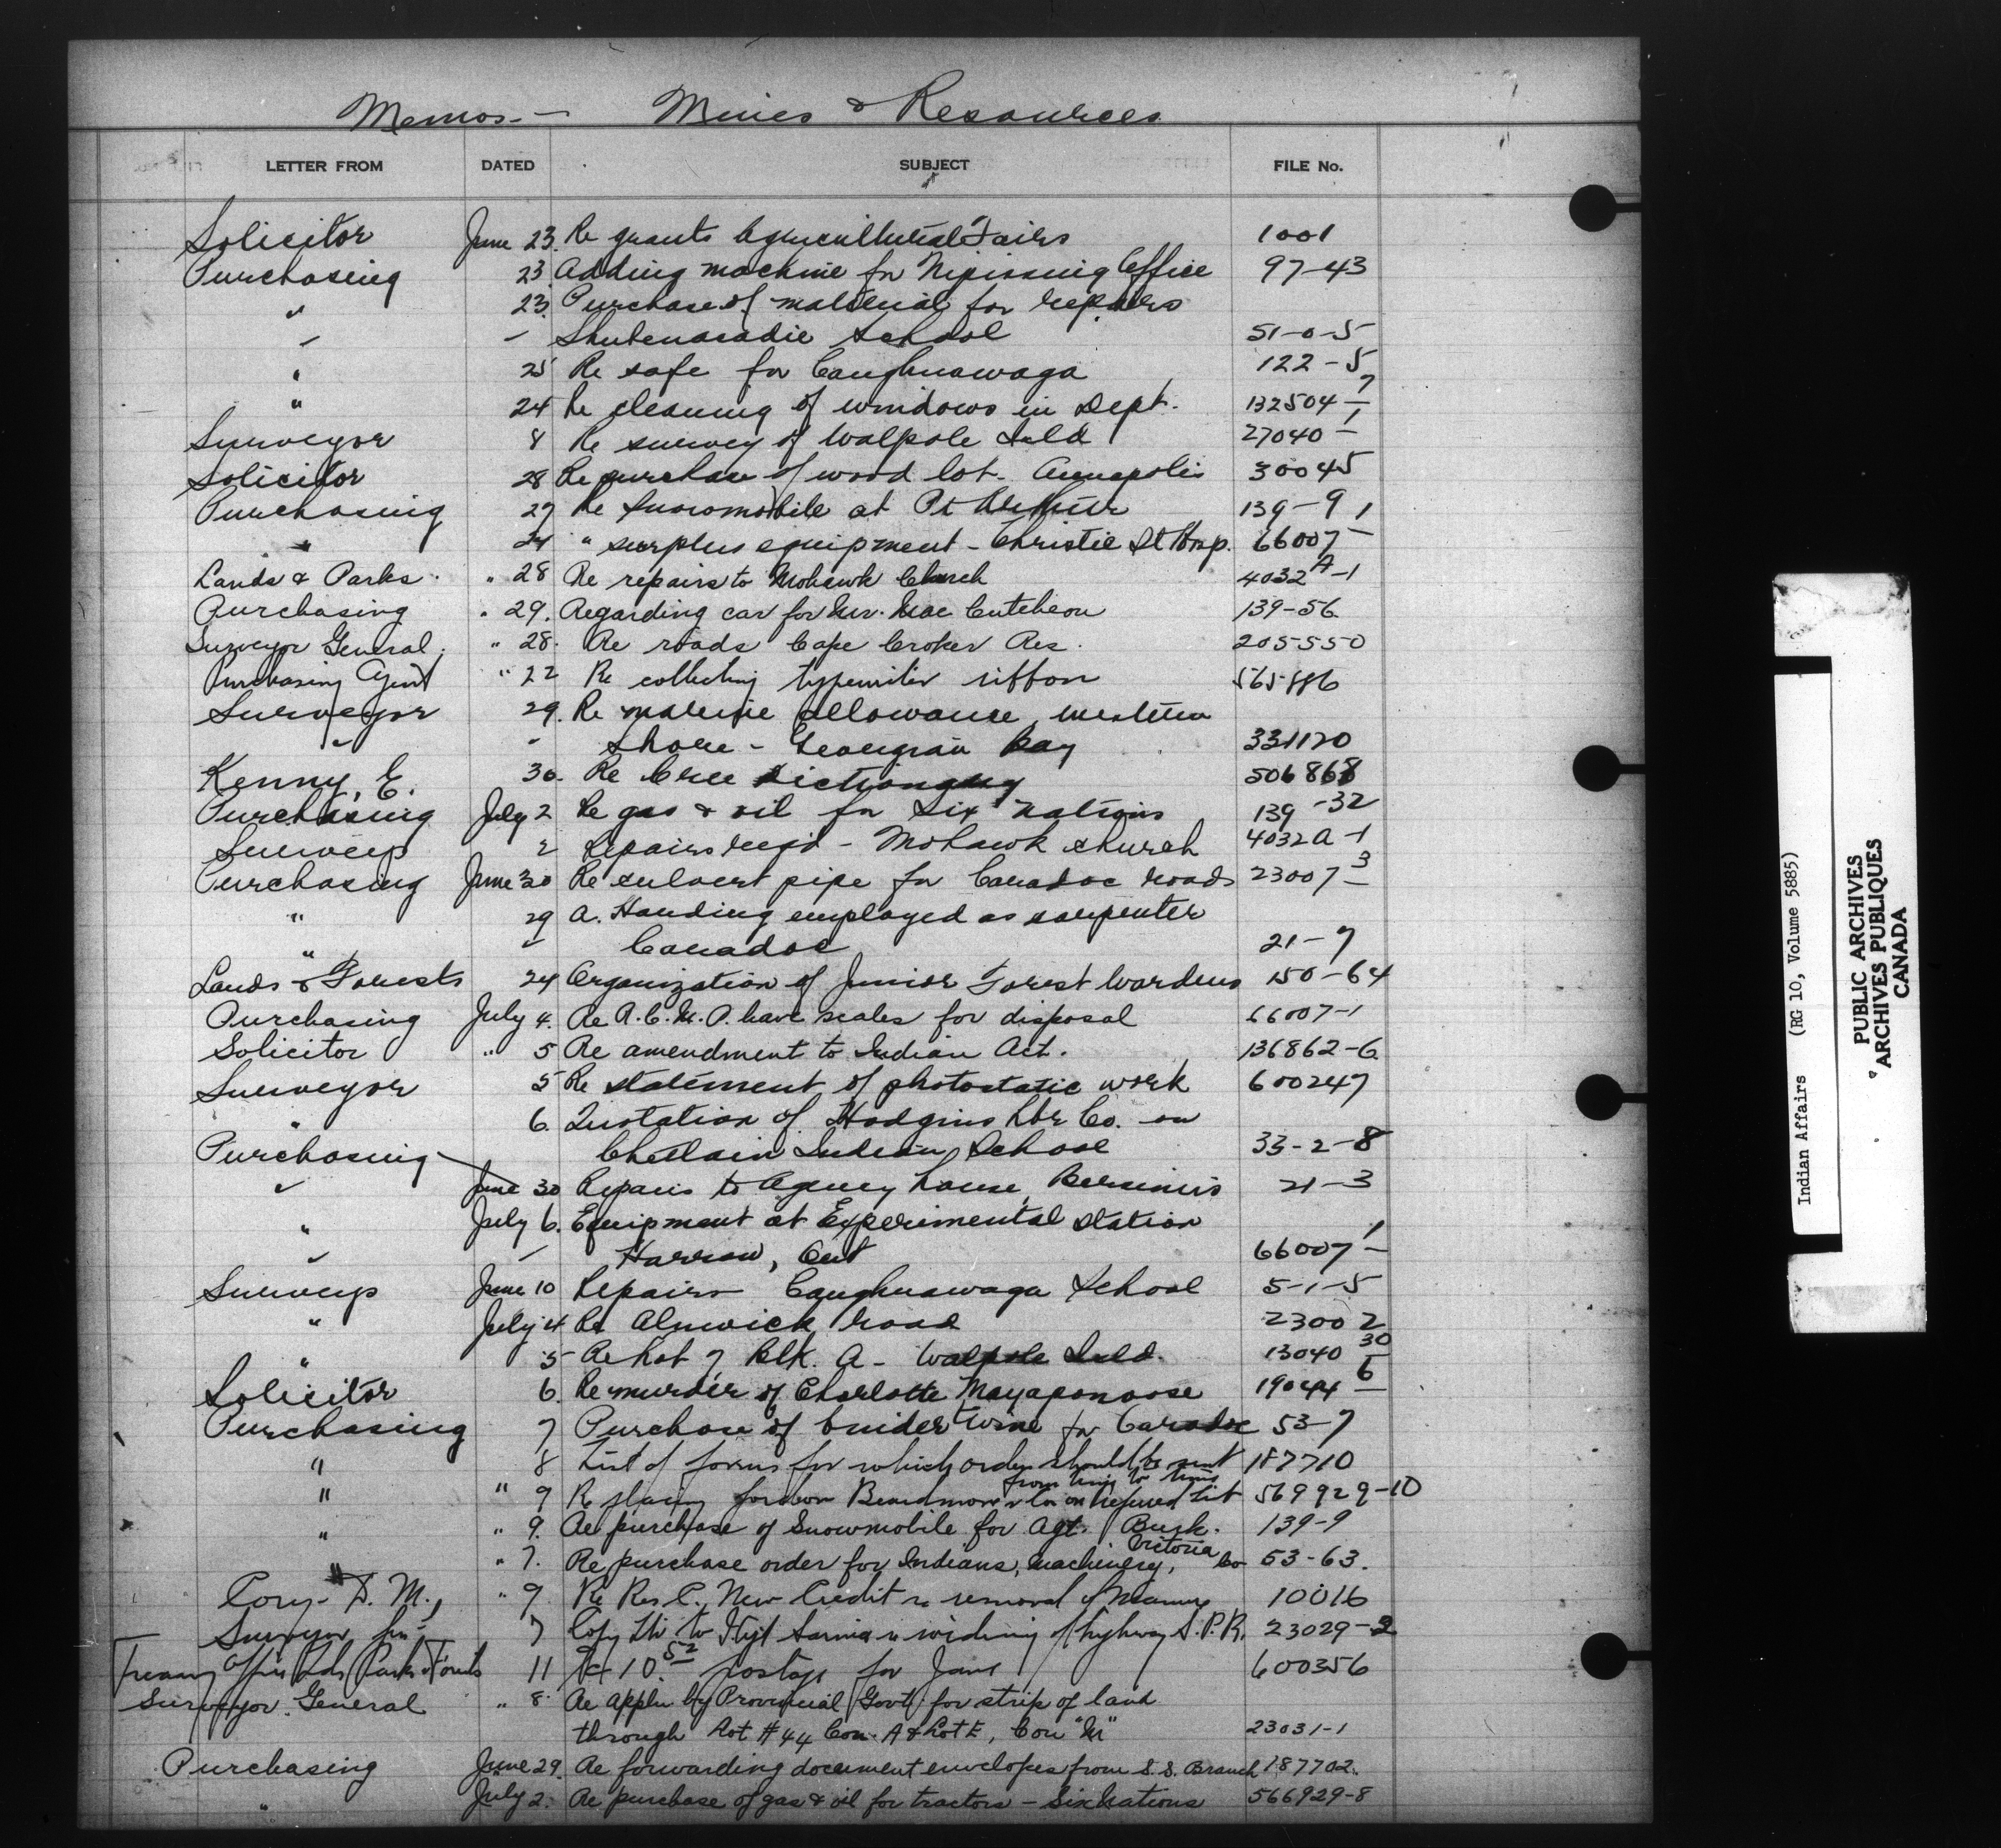 Memos — Mines & Resources
LETTER FROM DATED SUBJECT FILE No.
Solicitor June 23. Re grants Agricultural Fairs 1001
Purchasing 23 Adding machine for Nipissing Office 97-43
" 23. Purchase of material for repairs
" - Shubenacadie School 51-0-5
" 25 Re safe for Caughnawaga 122-5
" 24 Re cleaning of windows in Dept. 132504-7
Surveyor 8 Re survey of Walpole Isld 27040-1
Solicitor 28 Re purchase of wood lot - Annapolis 30045
Purchasing 27 Re Snowmobile at Pt Arthur 139-9
" 24 " surplus equipment - Christie St Hosp. 66007-1
Lands & Parks " 28 Re repairs to Mohawk Church 4032A-1
Purchasing " 29. Regarding car for Mr. MacCutcheon 139-56
Surveyor General " 28. Re roads Cape Croker Res. 205550
Purchasing Agent " 22 Re collecting typewriter ribbon 565886
Surveyor 29. Re marine allowance, western
" " Shore - Georgian Bay 331120
Kenny, E. 30. Re Cree Dictionary 506868
Purchasing July 2 Re gas & oil for Six Nations 139-32
Surveys 2 Repairs req'd - Mohawk Church 4032A-1
Purchasing June 30 Re culvert pipe for Caradoc roads 23007-3
" 29 A. Harding employed as carpenter
" " Caradoc 21-7
Lands & Forests 24 Organization of Junior Forest Wardens 150-64
Purchasing July 4. Re R.C.M.P. have scales for disposal 66007-1
Solicitor " 5 Re amendment to Indian Act. 136862-6
Surveyor 5 Re statement of photostatic work 600247
" 6. Quotation of Hodgins Lbr Co. on
Purchasing Indian School 33-2-8
" June 30 Repairs to Agency house, Bersimis 21-3
" July 6. Equipment at Experimental Station
" - Harrow, Ont 66007-1
Surveys June 10 Repairs Caughnawaga School 5-1-5
" July 4 Re Alnwick road 23002
" 5 Re Lot 7 Blk. A - Walpole Isld. 13040 30
Solicitor 6. Re murder of Charlotte 19044-6
Purchasing 7 Purchase of binder twine for Caradoc 53-7
" 8 List of forms for which order should be sent 187710
from time to time
" " 9 Re placing Beardmore & Co on preferred list 569929-10
" " 9. Re purchase of Snowmobile for Agt. Burk. 139-9
" " 7. Re purchase order for Indians, machinery, Victoria Co 53-63.
Cory - D. M. " 9 Re Res C. New Credit re removal of 10016
Surveyor Gen 7 Copy ltr to Hgt Sarnia re widening of highway S.P.R. 23029-2
Treasury Office Lds Parks & Forests 11 Re 10.52 postage for June 600356
Surveyor General " 8. Re appln by Provincial Govt. for strip of land
through Lot #44 Con. A & Lot E, Con "M" 23031-1
Purchasing June 29. Re forwarding document envelopes from S.S. Branch 187702.
" July 2. Re purchase of gas & oil for tractors - Six Nations 566929-8
Indian Affairs (RG 10, Volume 5885)
PUBLIC ARCHIVES
ARCHIVES PUBLIQUES
CANADA